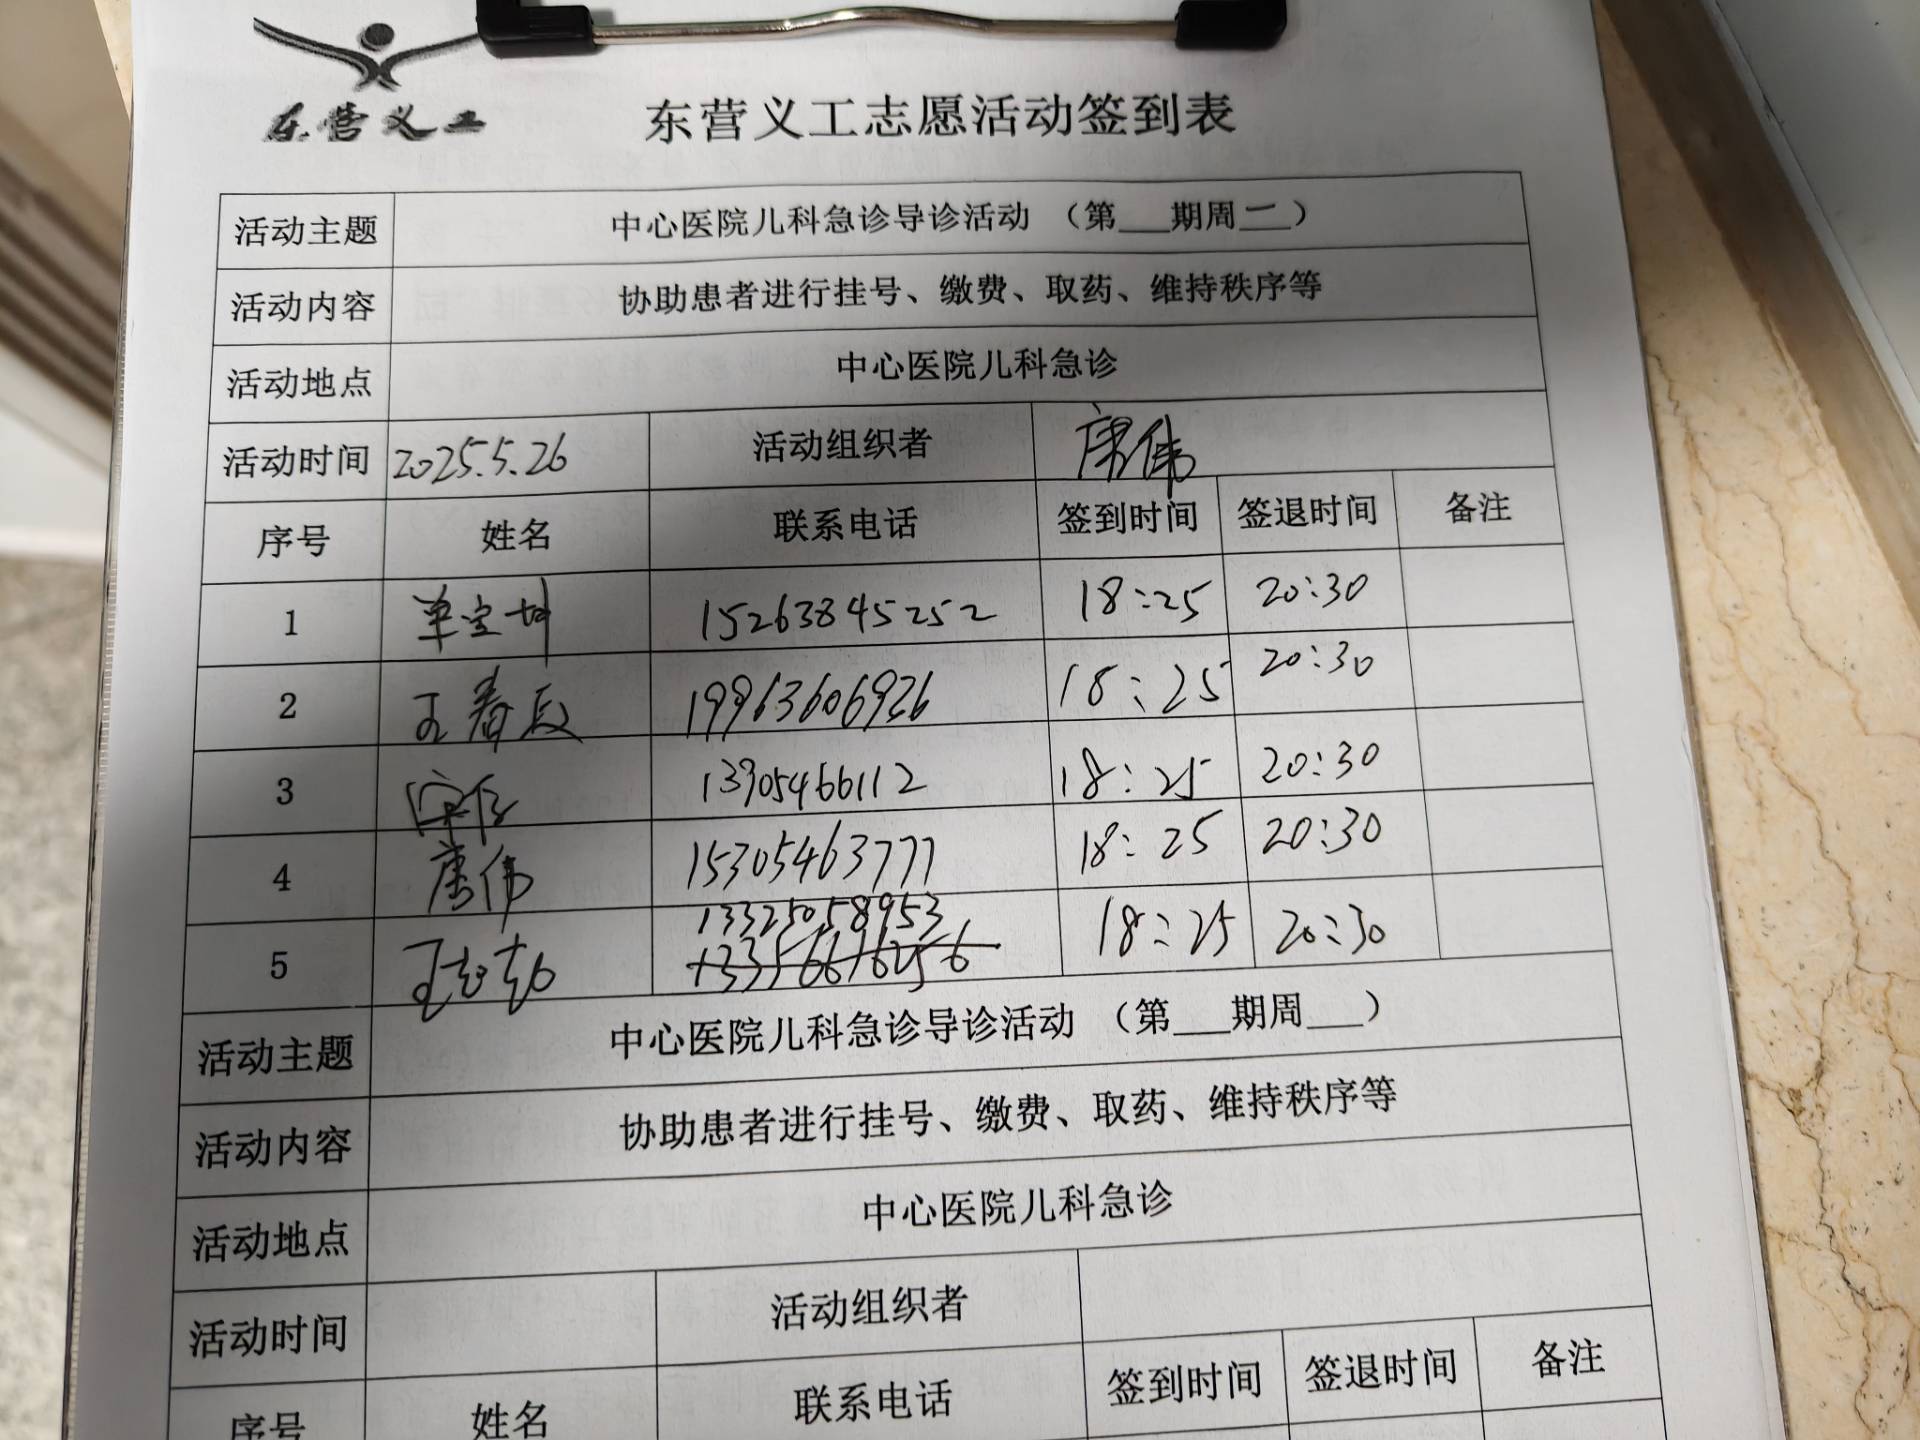 东营义工
东营义工志愿活动签到表
活动主题 中心医院儿科急诊导诊活动 (第___期周一)
活动内容 协助患者进行挂号、缴费、取药、维持秩序等
活动地点 中心医院儿科急诊
活动时间 2025.5.26 活动组织者 康伟
序号 姓名 联系电话 签到时间 签退时间 备注
1 单宝坤 15263845252 18:25 20:30
2 王春 19963606926 18:25 20:30
3 13905466112 18:25 20:30
4 康伟 15305463777 18:25 20:30
13325058953
5 王 13356616256 18:25 20:30
活动主题 中心医院儿科急诊导诊活动 (第___期周___)
活动内容 协助患者进行挂号、缴费、取药、维持秩序等
活动地点 中心医院儿科急诊
活动时间 活动组织者
序号 姓名 联系电话 签到时间 签退时间 备注